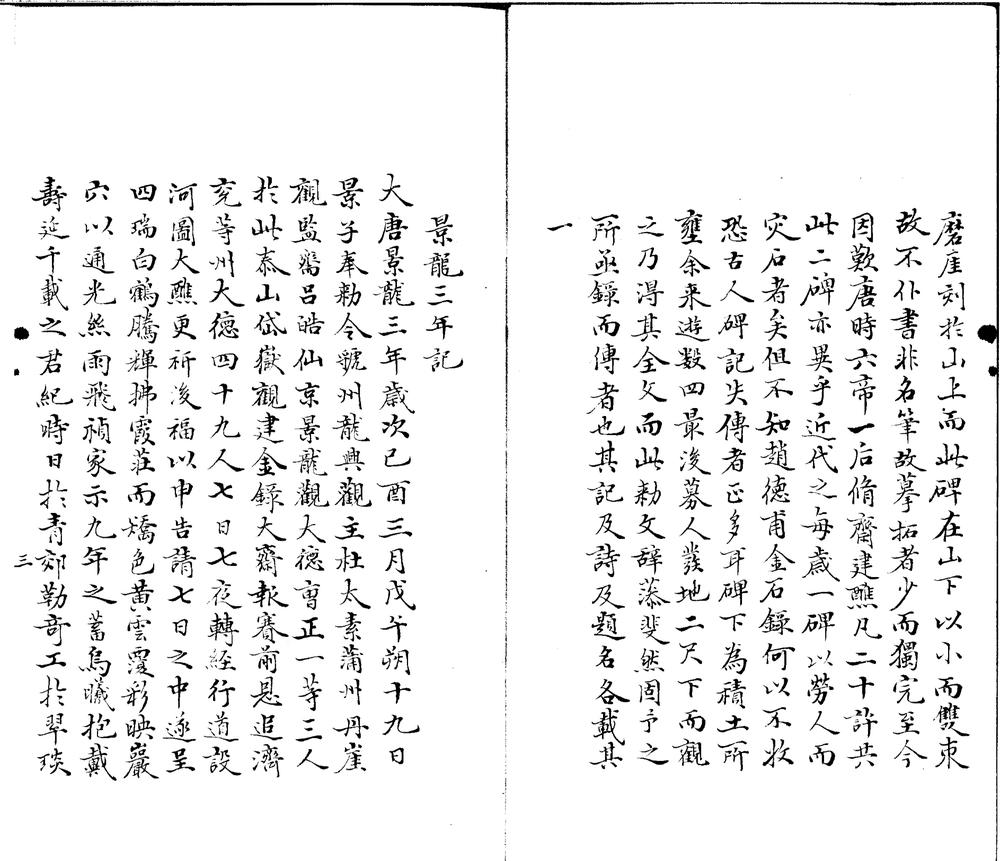 磨崖刻於山上而此碑在山下以小而雙束
故不仆書非名筆故摹拓者少而獨完至今
因歎唐時六帝一后脩齋建醮凡二十許共
此二碑亦異乎近代之每歲一碑以勞人而
灾石者矣但不知趙德甫金石錄何以不收
恐古人碑記失傳者正多耳碑下為積土所
壅余来遊数四最後募人發地二尺下而觀
之乃得其全文而此勅文辭藻斐然固予之
所亟錄而傳者也其記及詩及題名各載其
一
景龍三年記
大唐景龍三年歲次已酉三月戊午朔十九日
景子奉勅令虢州龍興觀主杜太素蒲州丹崖
觀監齋呂皓仙京景龍觀大德曺正一等三人
於此泰山岱嶽觀建金錄大齋報賽前恩追濟
兖等州大德四十九人七日七夜轉経行道設
河圖大醮更祈後福以申告請七日之中遂呈
四瑞白鶴騰輝拂霞莊而矯色黄雲覆彩映巖
穴以通光絲雨飛禎家示九年之蓄烏曦抱戴
壽延千載之君紀時日於青郊勒奇工於翠琰
三